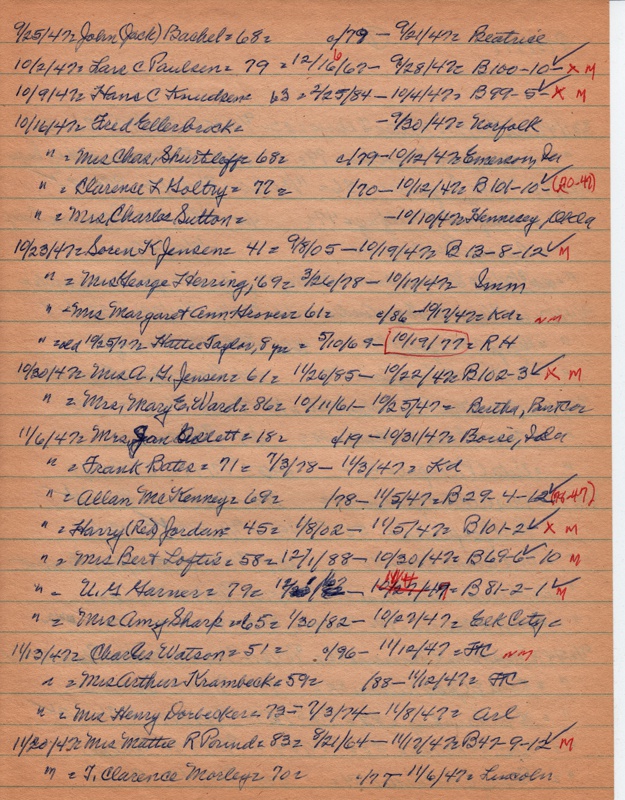 9/25/47= John (Jack) Bachel= 68= c/79 - 9/21/47= Beatrice
10/2/47= Lars C Paulsen= 79 = 12/16/67- 9/28/47= B100-10- ✓ x M
10/9/47= Hans C Knudsen= 63 = 2/25/84- 10/4/47= B99-5- ✓ x M
10/16/47= Fred Ellerbrock= - 9/30/47= Norfolk
" = Mrs Chas, Shurtleff= 68= c/79-10/12/47= Emerson, Ia
" = Clarence L Holtry= 77= /70-10/12/47= B101-10- ✓ (20-47)
" = Mrs, Charles, Sutton= -10/10/47= Hennesey, Okla
10/23/47= Soren K Jensen= 41= 9/8/05-10/19/47= B 13-8-12 ✓ M
" = Mrs George Herring, '69= 3/26/78-10/17/47= Imm
" = Mrs Margaret Ann Hoover= 61= c/86-10/7/47= Kd= NM
" = Hattie Taylor, 8 yr= 5/10/69- 10/19/77= R H
10/30/47= Mrs A. G. Jensen= 61= 11/26/85- 10/22/47= B102-3 ✓ x M
" = Mrs, Mary E, Ward= 86= 10/11/61- 10/25/47= Bertha,
11/6/47= Mrs, Jan = 18= c/19-10/31/47= Boise, Ida
" = Frank Bates= 71= 7/3/78- 11/3/47= Kd
" = Allan McKenney= 69= /78-11/5/47= B29-4-12 ✓ (96-47)
" = Harry (Red) Jordan= 45= 1/8/02- 11/5/47= B101-2 ✓ x M
" = Mrs Bert Loftis= 58= 12/1/88- 10/30/47= B69-6-10 ✓ M
" = U. G. Harner= 79= - = B81-2-1 ✓ M
" = Mrs Amy Sharp = 65= 1/30/82- 10/27/47= Elk City=
11/13/47= Charles Watson= 51= c/96-11/12/47= FC NM
" = Mrs Arthur Krambeck= 59= /88-11/12/47= FC
" = Mrs Henry Dorbecker= 73- 7/3/74- 11/8/47= Arl
11/20/47= Mrs Mattie R Pound= 83= 8/21/64- 11/17/47= B47-9-12 ✓ M
" = T. Clarence Morley= 70= c/77- 11/6/47= Lincoln